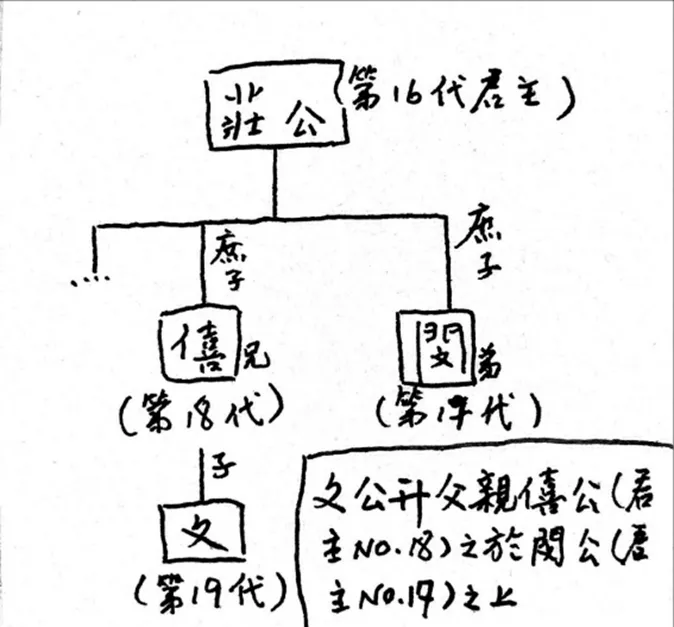 莊公(第16代君主)
庶子
庶子
....
僖兄
閔弟
(第18代)
(第17代)
子
文
(第19代)
文公升父親僖公(君
主NO.18)之於閔公(君
主NO.17)之上